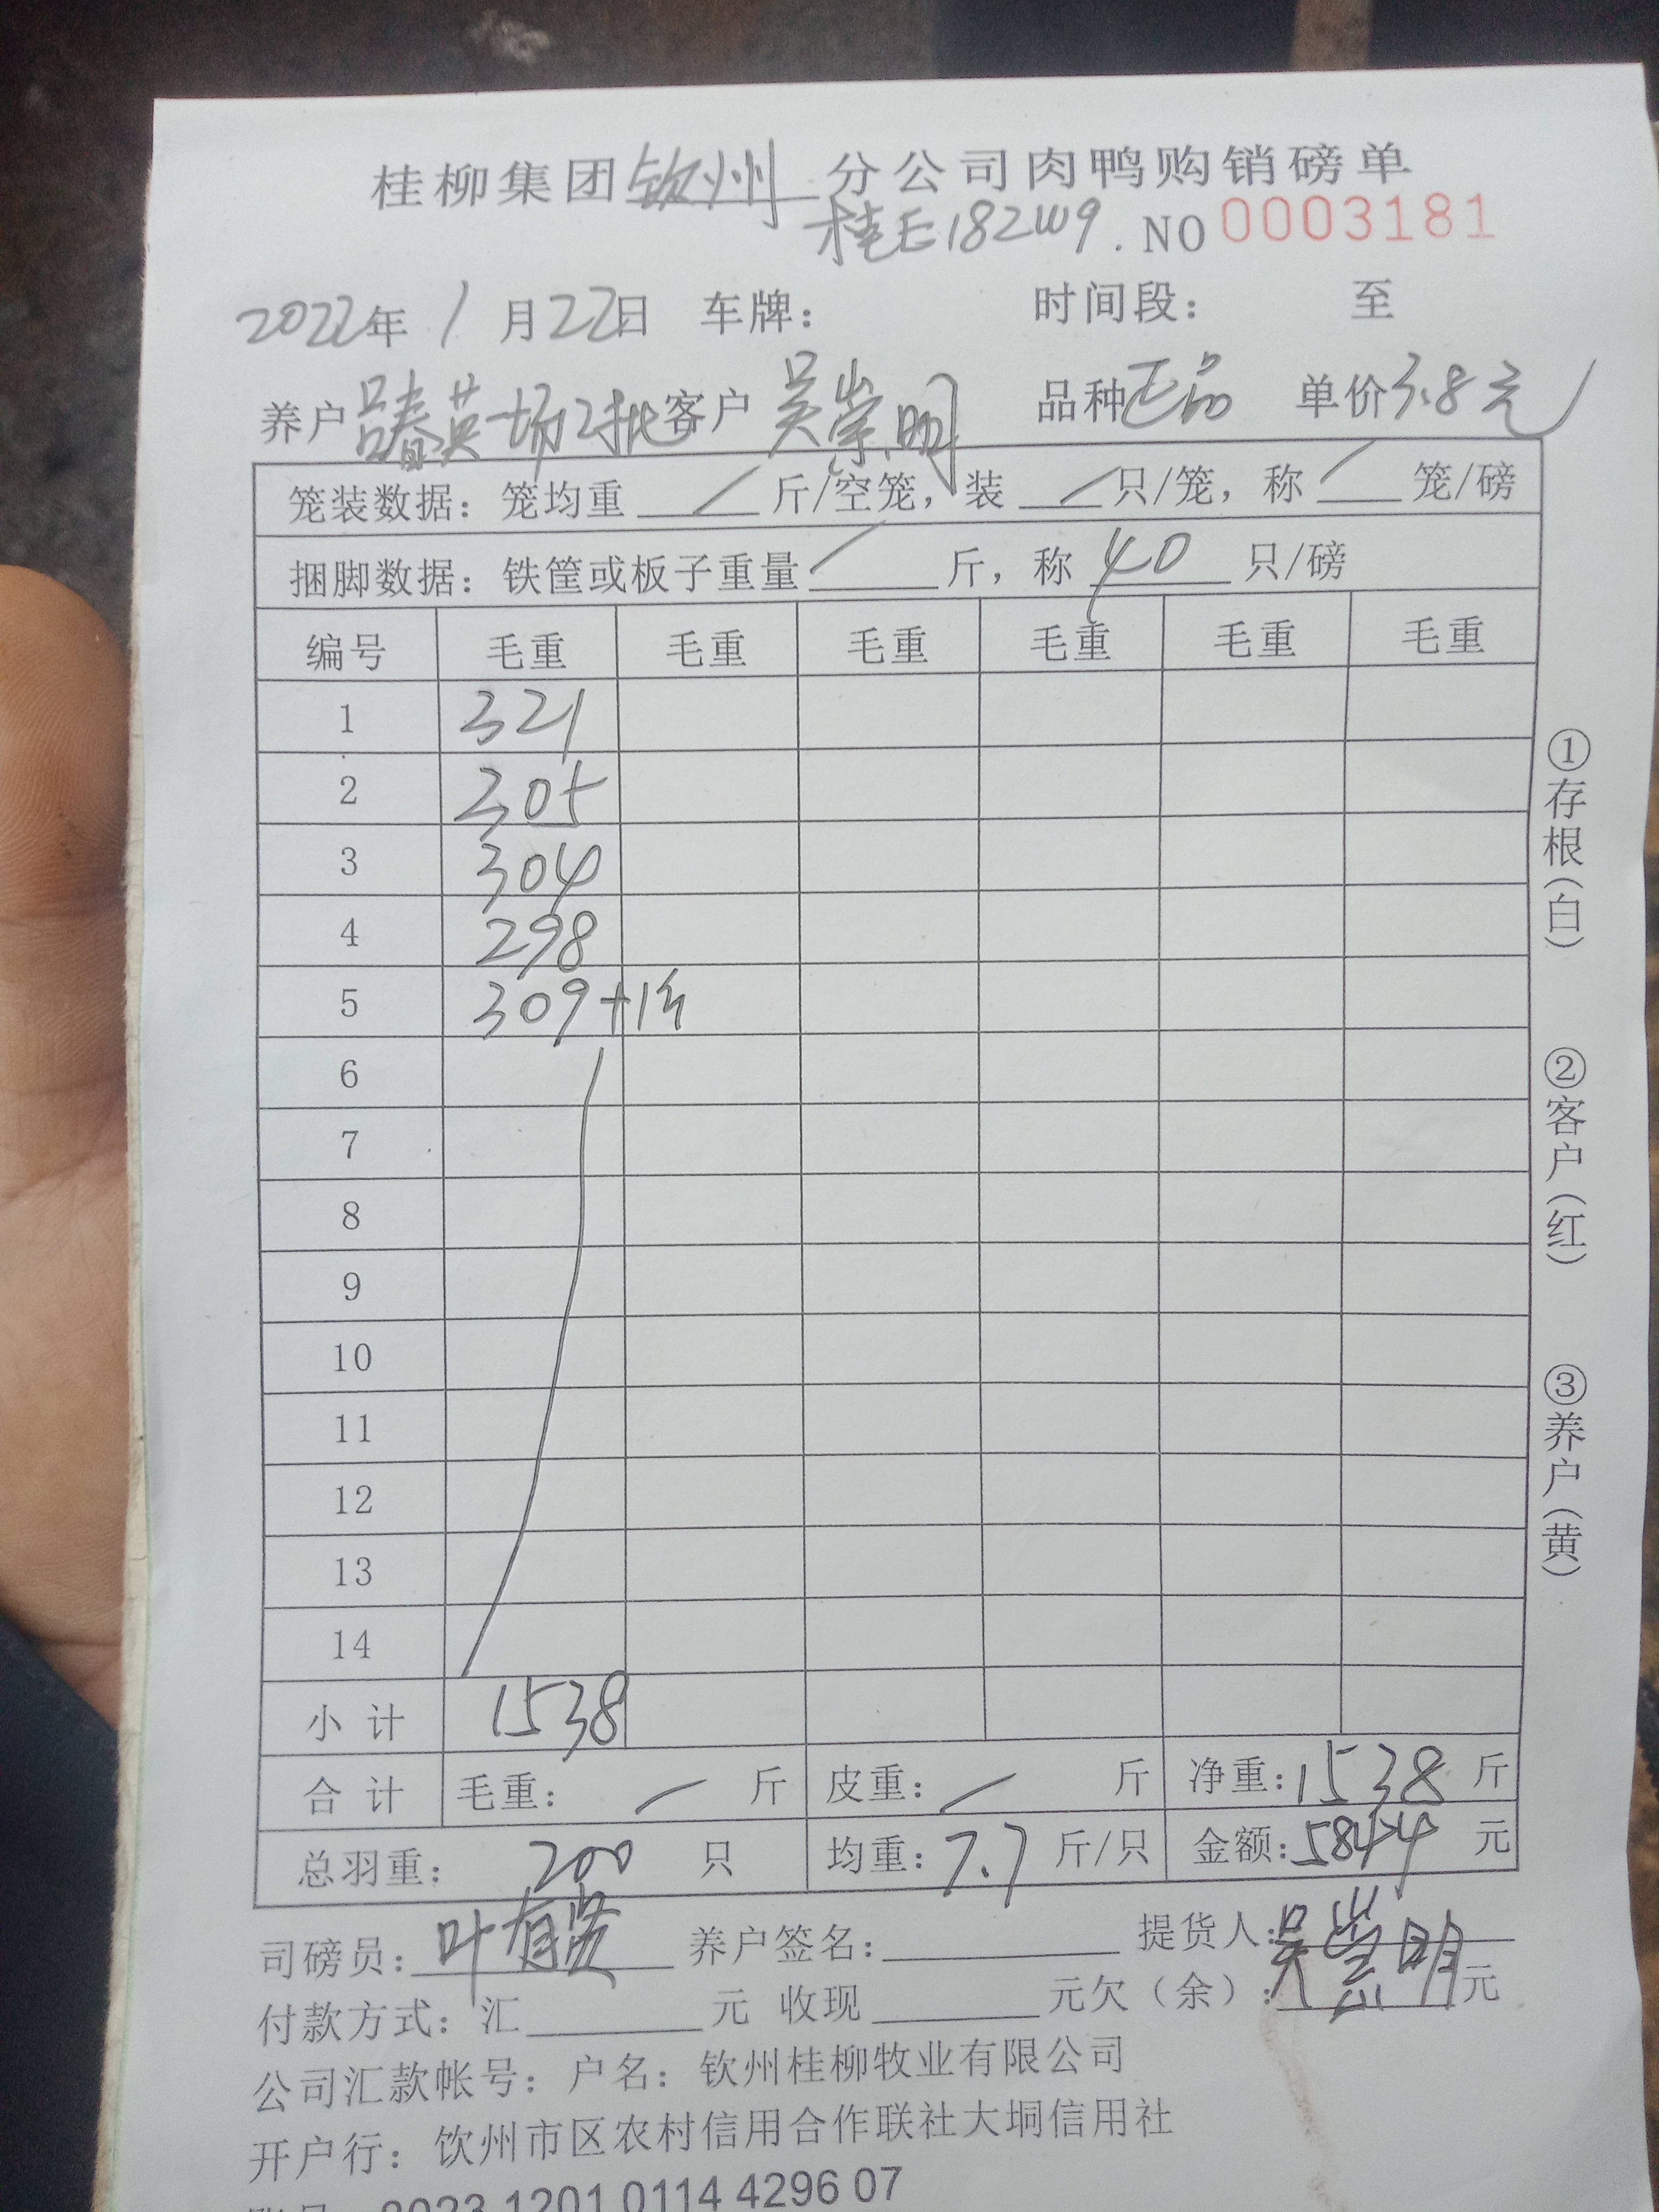 桂柳集团钦州分公司肉鸭购销磅单
桂E182W9. NO 0003181
2022年 1月22日 车牌： 时间段： 至
养户 吕春英场2批 客户 吴崇明 品种 正品 单价3.8元
笼装数据：笼均重 / 斤/空笼，装 / 只/笼，称 / 笼/磅
捆脚数据：铁筐或板子重量 / 斤，称 40 只/磅
编号 毛重 毛重 毛重 毛重 毛重 毛重
1 321
2 305
3 304
4 298
5 309+1斤
6
7
8
9
10
11
12
13
14
小计 1538
合计 毛重： / 斤 皮重： / 斤 净重：1538 斤
总羽重： 200 只 均重：7.7 斤/只 金额：5844 元
司磅员：叶有贤 养户签名： 提货人：吴崇明
付款方式：汇 元 收现 元欠（余）： 元
公司汇款帐号：户名：钦州桂柳牧业有限公司
开户行：钦州市区农村信用合作联社大垌信用社
1201 0114 4296 07
①存根（白）
②客户（红）
③养户（黄）